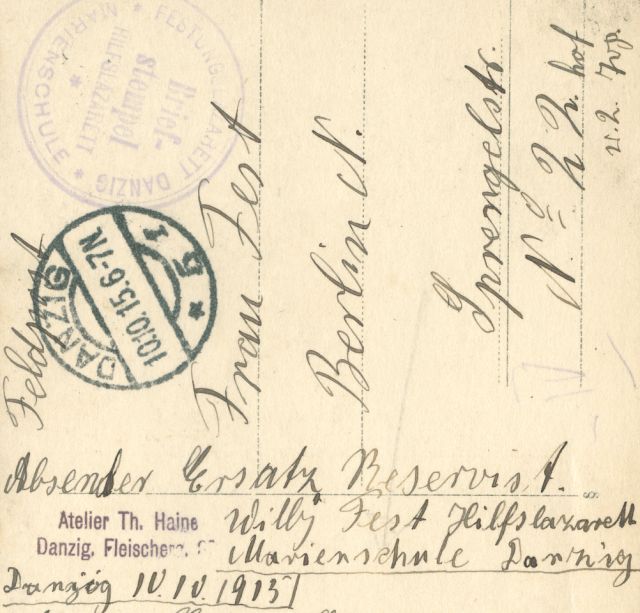 Feldpost
Frau Fest
Berlin N.
Sprengelstr.
No 22. hof
FESTUNG DANZIG
MARIENSCHULE
HILFSLAZARETT
Brief-
stempel
DANZIG
10.10.15.6-7N.
* 5 1
Absender Ersatz Reservist.
Willy Fest Hilfslazarett
Marienschule Danzig
Atelier Th. Haine
Danzig.
Danzig 10.10.1915